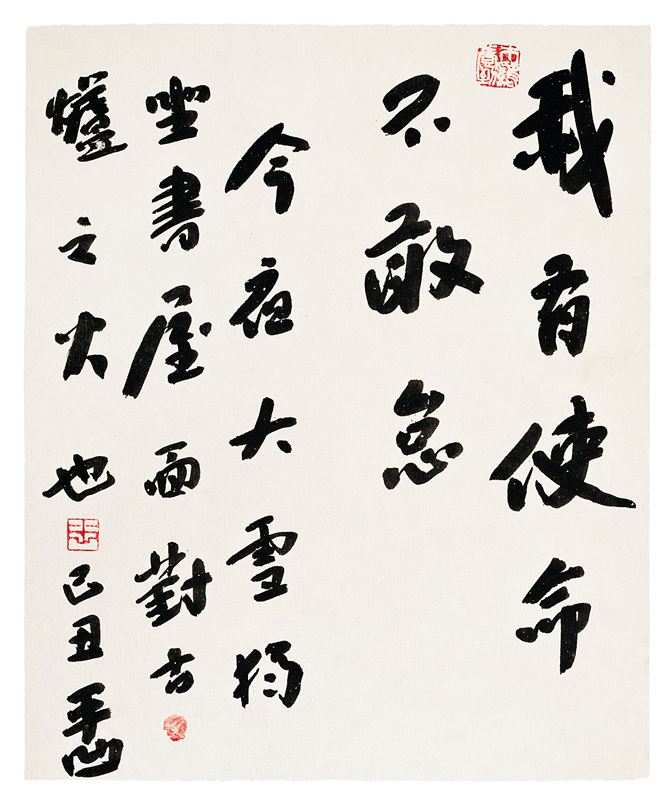 我有使命
不敢怠
今夜大雪獨
坐書屋面對古
爐之火也 己丑 平凹